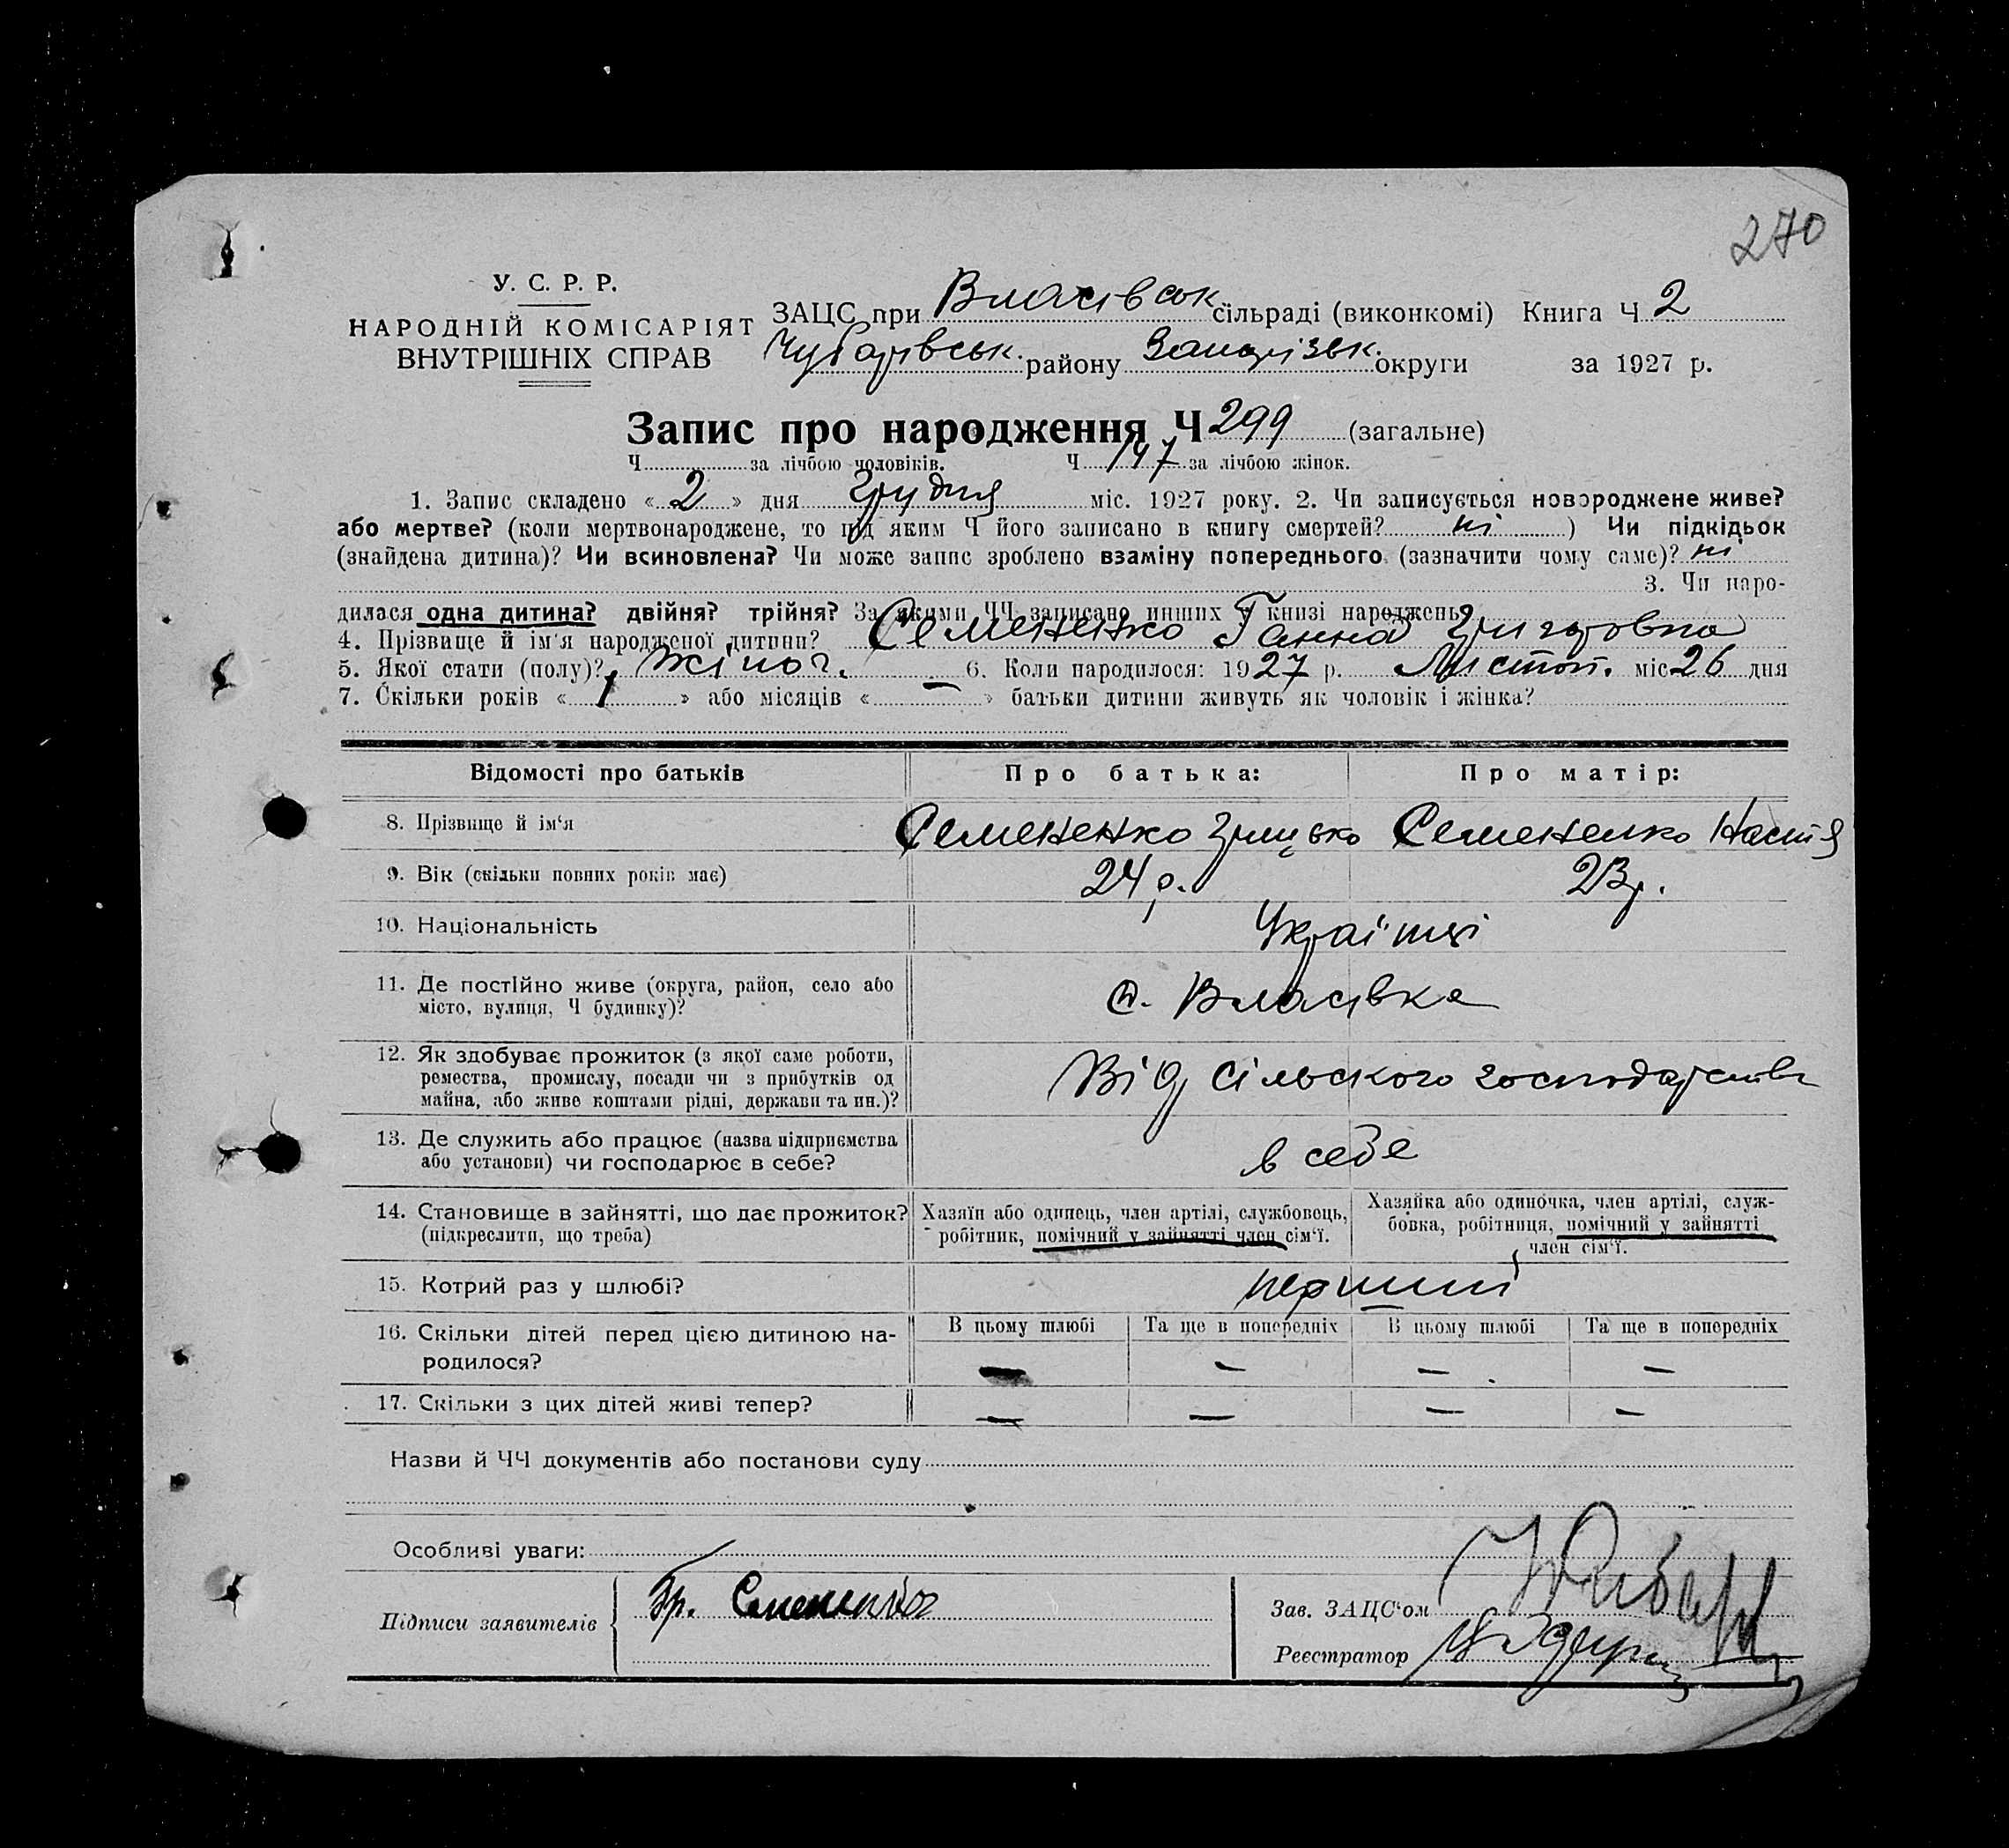 270
У. С. Р. Р.
НАРОДНІЙ КОМІСАРІЯТ
ВНУТРІШНІХ СПРАВ
ЗАЦС при Власівськ сільраді (виконкомі) Книга Ч 2
Чубарівськ. району Запорізьк. округи за 1927 р.
Запис про народження Ч 299 (загальне)
Ч за лічбою чоловіків. Ч 147 за лічбою жінок.
1. Запис складено « 2 » дня Грудня міс. 1927 року. 2. Чи записується новороджене живе?
або мертве? (коли мертвонароджене, то під яким Ч його записано в книгу смертей? ні ) Чи підкідьок
(знайдена дитина)? Чи всиновлена? Чи може запис зроблено взаміну попереднього (зазначити чому саме)? ні
3. Чи наро-
дилася одна дитина? двійня? трійня? За якими ЧЧ записано инших у книзі народжень
4. Прізвище й ім'я народженої дитини? Семененко Ганна Григоровна
5. Якої стати (полу)? жіноч. 6. Коли народилося: 1927 р. Листоп. міс 26 дня
7. Скільки років « 1 » або місяців « — » батьки дитини живуть як чоловік і жінка?
Відомості про батьків Про батька: Про матір:
8. Прізвище й ім'я Семененко Грицько Семененко Настя
9. Вік (скільки повних років має) 24 р. 23 р.
10. Національність Українці
11. Де постійно живе (округа, район, село або
місто, вулиця, Ч будинку)? с. Власівка
12. Як здобуває прожиток (з якої саме роботи,
ремества, промислу, посади чи з прибутків од
майна, або живе коштами рідні, держави та ин.)? Від сільского господарства
13. Де служить або працює (назва підприємства
або установи) чи господарює в себе? в себе
14. Становище в зайнятті, що дає прожиток?
(підкреслити, що треба)
Хазяїн або одинець, член артілі, службовець,
робітник, помічний у зайнятті член сім'ї.
Хазяйка або одиночка, член артілі, служ-
бовка, робітниця, помічний у зайнятті
член сім'ї.
15. Котрий раз у шлюбі? перший
16. Скільки дітей перед цією дитиною на-
родилося?
В цьому шлюбі Та ще в попередніх В цьому шлюбі Та ще в попередніх
— — — —
17. Скільки з цих дітей живі тепер? — — — —
Назви й ЧЧ документів або постанови суду
Особливі уваги:
Підписи заявителів Гр. Семененко
Зав. ЗАЦС'ом
Реєстратор